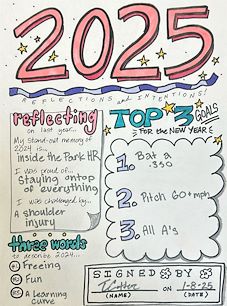 2025
REFLECTIONS and INTENTIONS!
reflecting
on last year...
My stand-out memory of
2024 is...
inside the Park HR
I was proud of...
Staying ontop
of everything
I was challenged by...
A shoulder
injury
three words
to describe 2024...
#1 Freeing
#2 Fun
#3 A learning
curve
TOP 3 GOALS
FOR the NEW YEAR
1. Bat a
.350
2. Pitch 60+mph
3. All A's
SIGNED BY
(NAME)
1-8-25
(DATE)